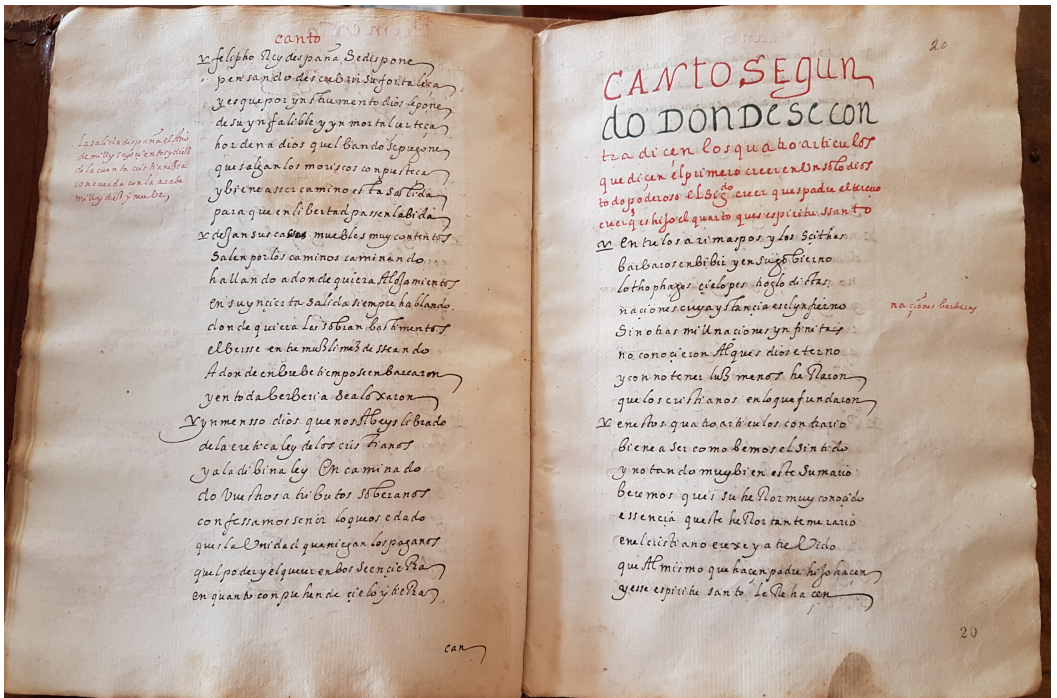 canto
felipho Rey despaña Sedispone
pensando descubrir su fortaleça
y es que por ynstrumento dios sepone
de su ynfalible y ynmortal certeça
hordena dios quel bando sepregone
que salgan los moriscos con presteça
y biene a sser camino esta salida
para que en libertad passen la bida
dejan sus casas muebles muy contentos
Salen por los caminos caminando
hallando adonde quiera Alojamientos
en su ynçierta salida siempre hablando
donde quiera les sobran bastimentos
el berse entre muslimes desseando
Adonde en brebe tiempo se enbarcaron
y en toda berberia se aloxaron
ynmensso dios que nos Abeys librado
de la eretica ley de los cristianos
y a la dibina ley Encaminado
do Vuestros atributos soberanos
confessamos señor lo que os e dado
ques la Unidad que niegan los paganos
quel poder y el querer en bos se ençieRa
en quanto conprehende çielo y tieRa
can
la salida despaña el Año
de mill y seysçientos y diez
de la cuenta cristianesca
concuerda con la arabe
mill y diez y nuebe
20
CANTO SEGUN
do DONDE SE CON
tradicen los quatro articulos
que diçen el primero creer en Un solo dios
todo poderoso el Sigdo creer ques padre el terçero
creer q es hijo el quarto ques espiritu ssanto
Entre los arimaspos y los Scithas
barbaros en bibir y en su gobierno
lothophagos çiclopes
naçiones cuya ystançia es el ynfierno
Sin otras mill naçiones ynfinitas
no conoçieron Al ques dios eterno
y con no tener luz menos heRaron
que los cristianos en lo que fundaron
naçiones barbaras
en estos quatro articulos contrario
biene a ser como bemos el sintido
y notando muy bien este Sumario
beremos ques su heRor muy conoçido
essençia queste heRor tan temerario
en el cristiano crexe y a creVido
que Al mismo que haçen padre hijo haçen
y esse espiritu santo le Rehaçen
20